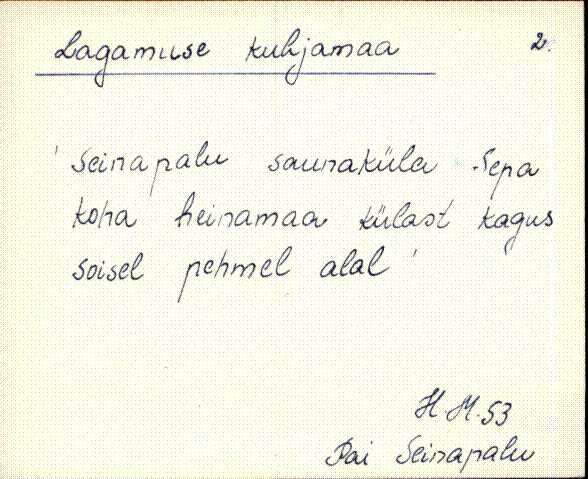 Lagamuse kuhjamaa 2.
' Seinapalu saunaküla Sepa
koha heinamaa külast kagus
soisel pehmel alal '
H.M.53
Pai Seinapalu